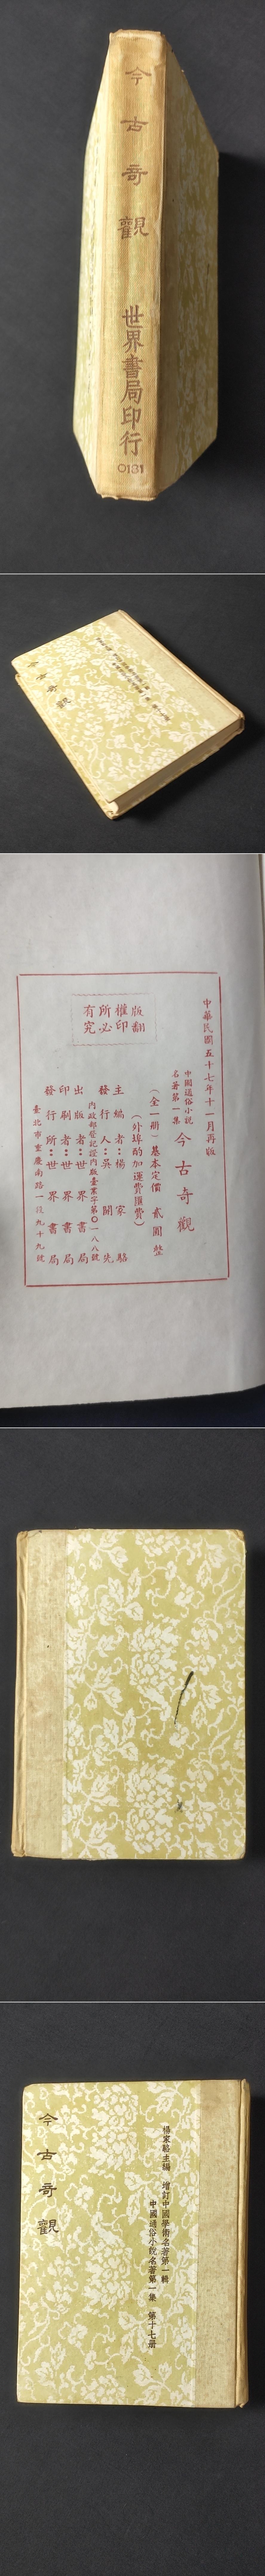 今古奇觀
世界書局印行
0181
今古奇觀
中華民國五十七年十一月再版
中國通俗小說
名著第一集
今古奇觀
(全一册)基本定價 貳圓 整
(外埠酌加運費匯費)
主編者：楊家駱
發行人：吳開先
內政部登記證內版臺業字第〇一八八號
出版者：世界書局
印刷者：世界書局
發行所：世界書局
臺北市重慶南路一段九十九號
版權所有
翻印必究
楊家駱主編 增訂中國學術名著第一輯
中國通俗小說名著第一集 第十七册
今古奇觀